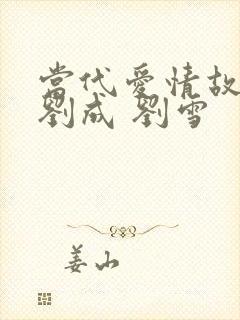 當代愛情故
劉成 劉雪
姜山